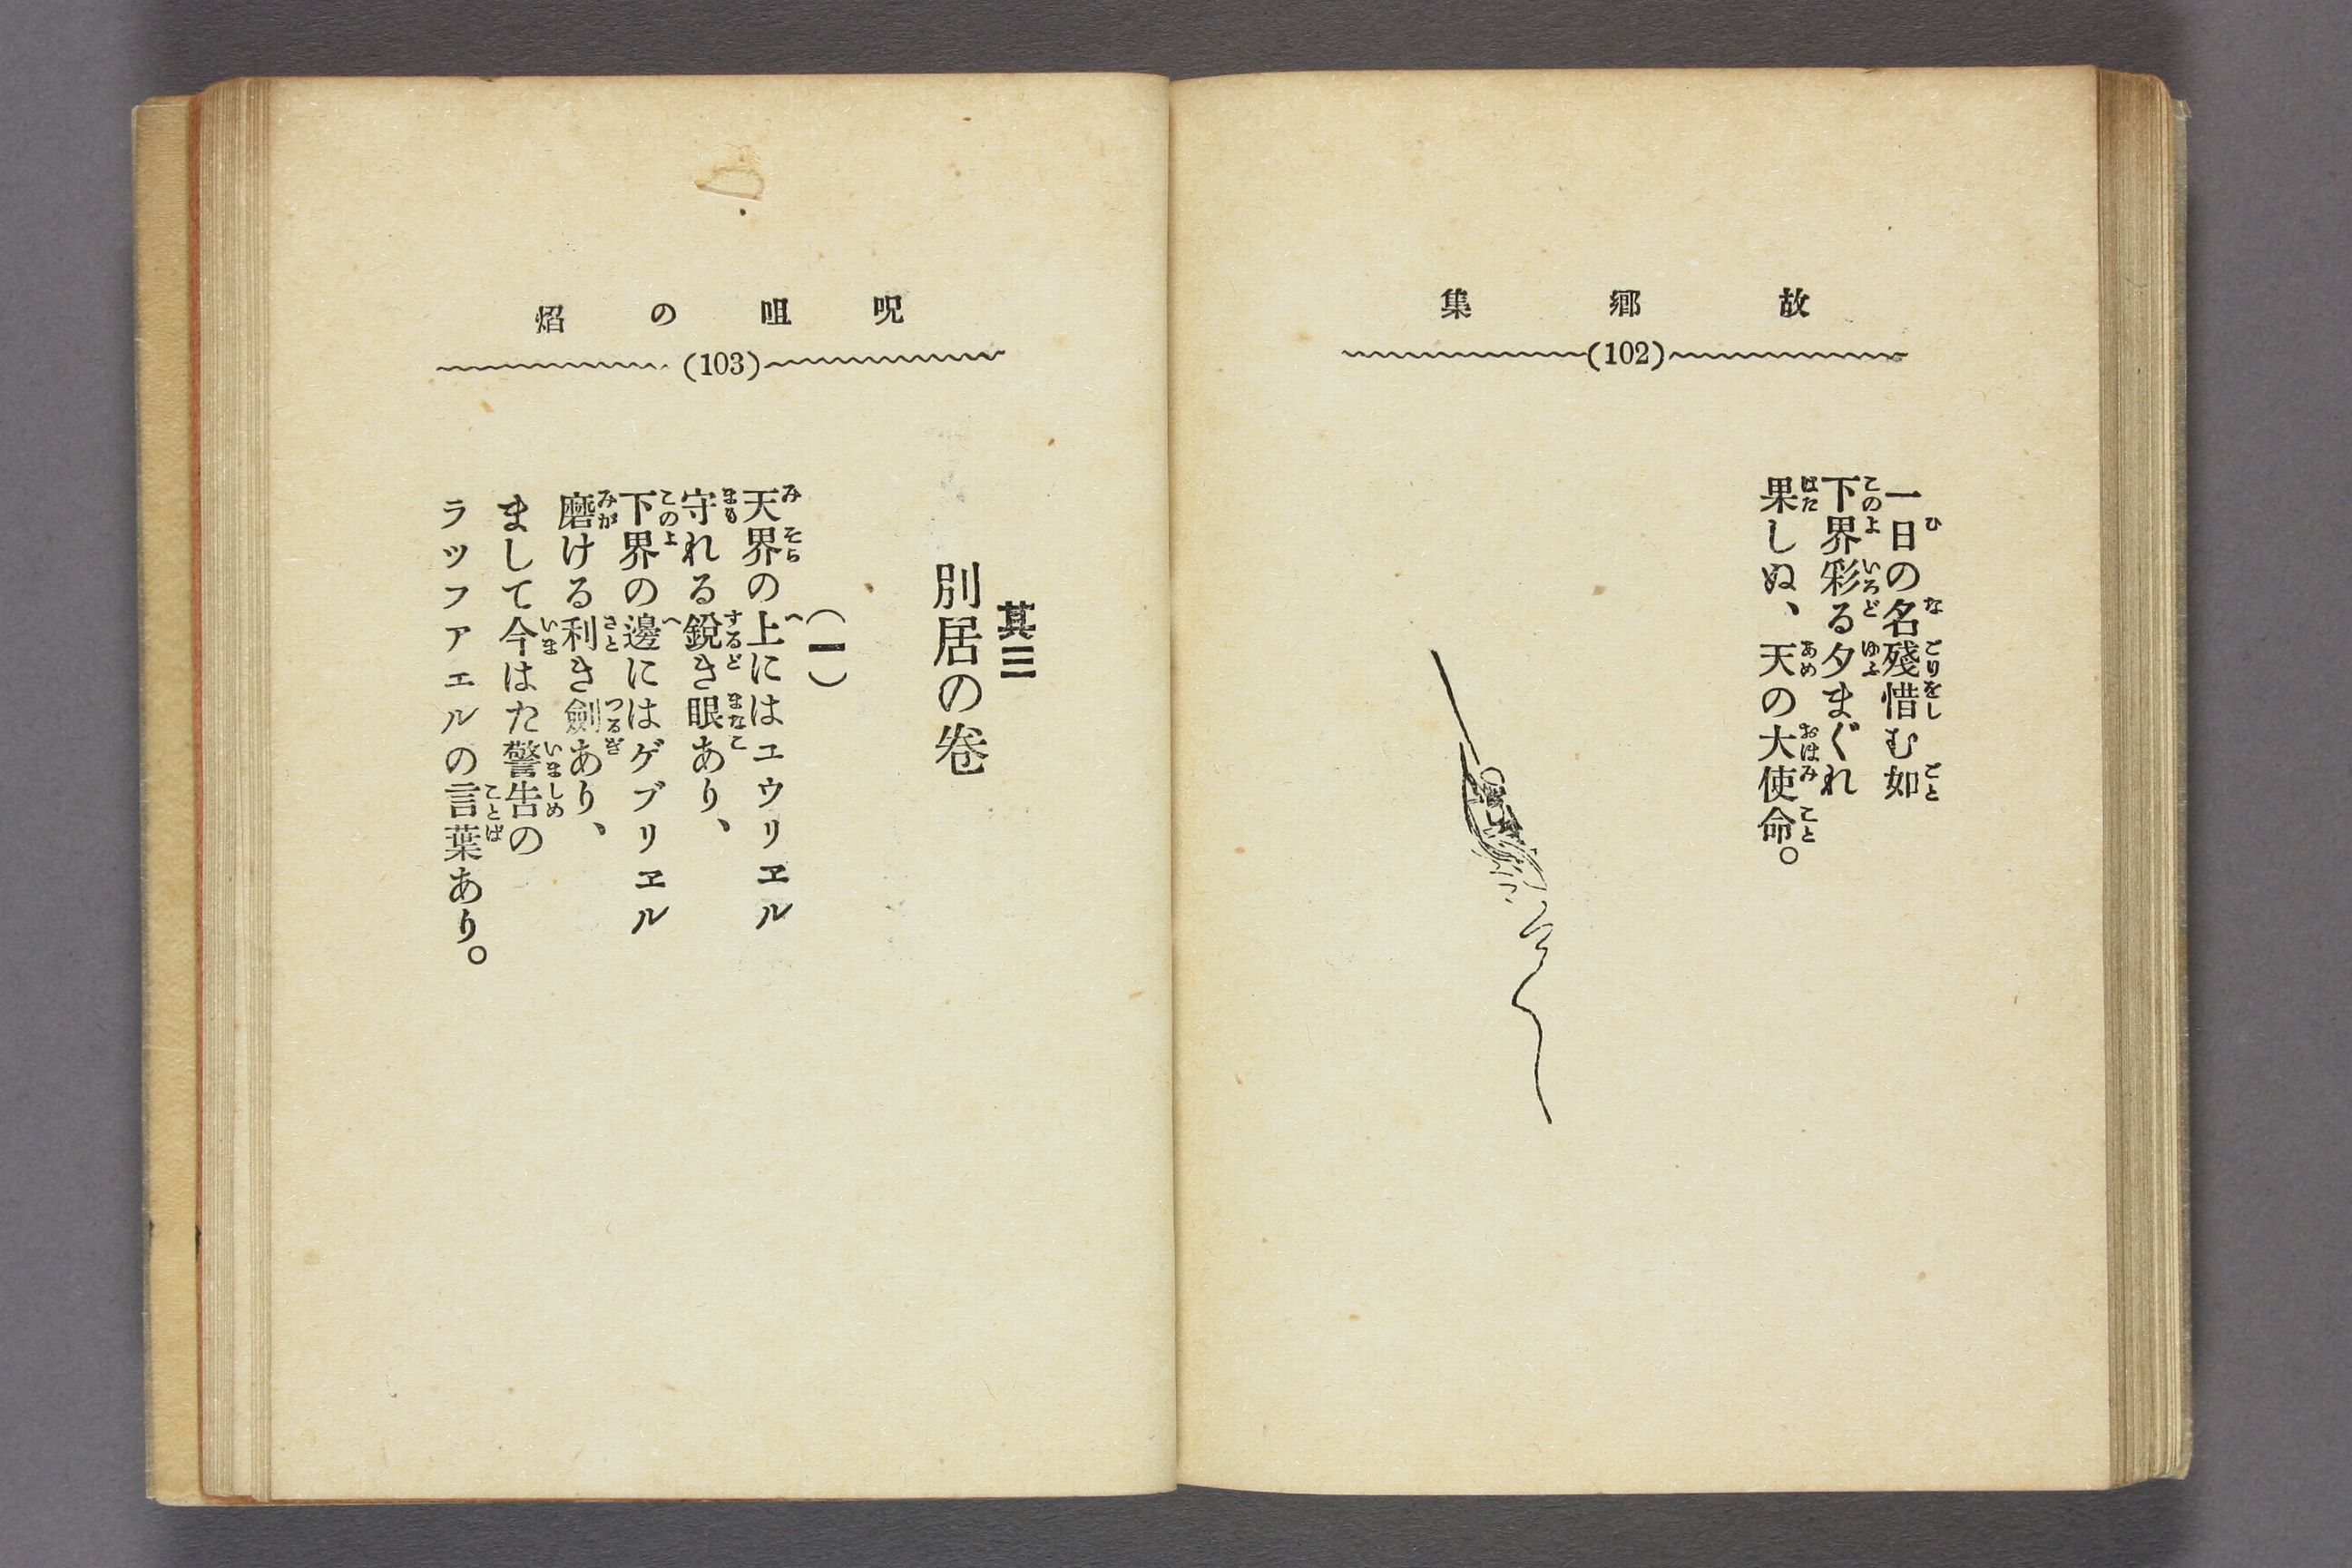 故郷集
(102)
一日の名殘惜む如
下界彩る夕まぐれ
果しぬ、天の大使命。
呪咀の焰
(103)
其三
別居の卷
(一)
天界の上にはエウリヱル
守れる鋭き眼あり、
下界の邊にはゲブリヱル
磨ける利き劍あり、
まして今はた警告の
ラッファエルの言葉あり。